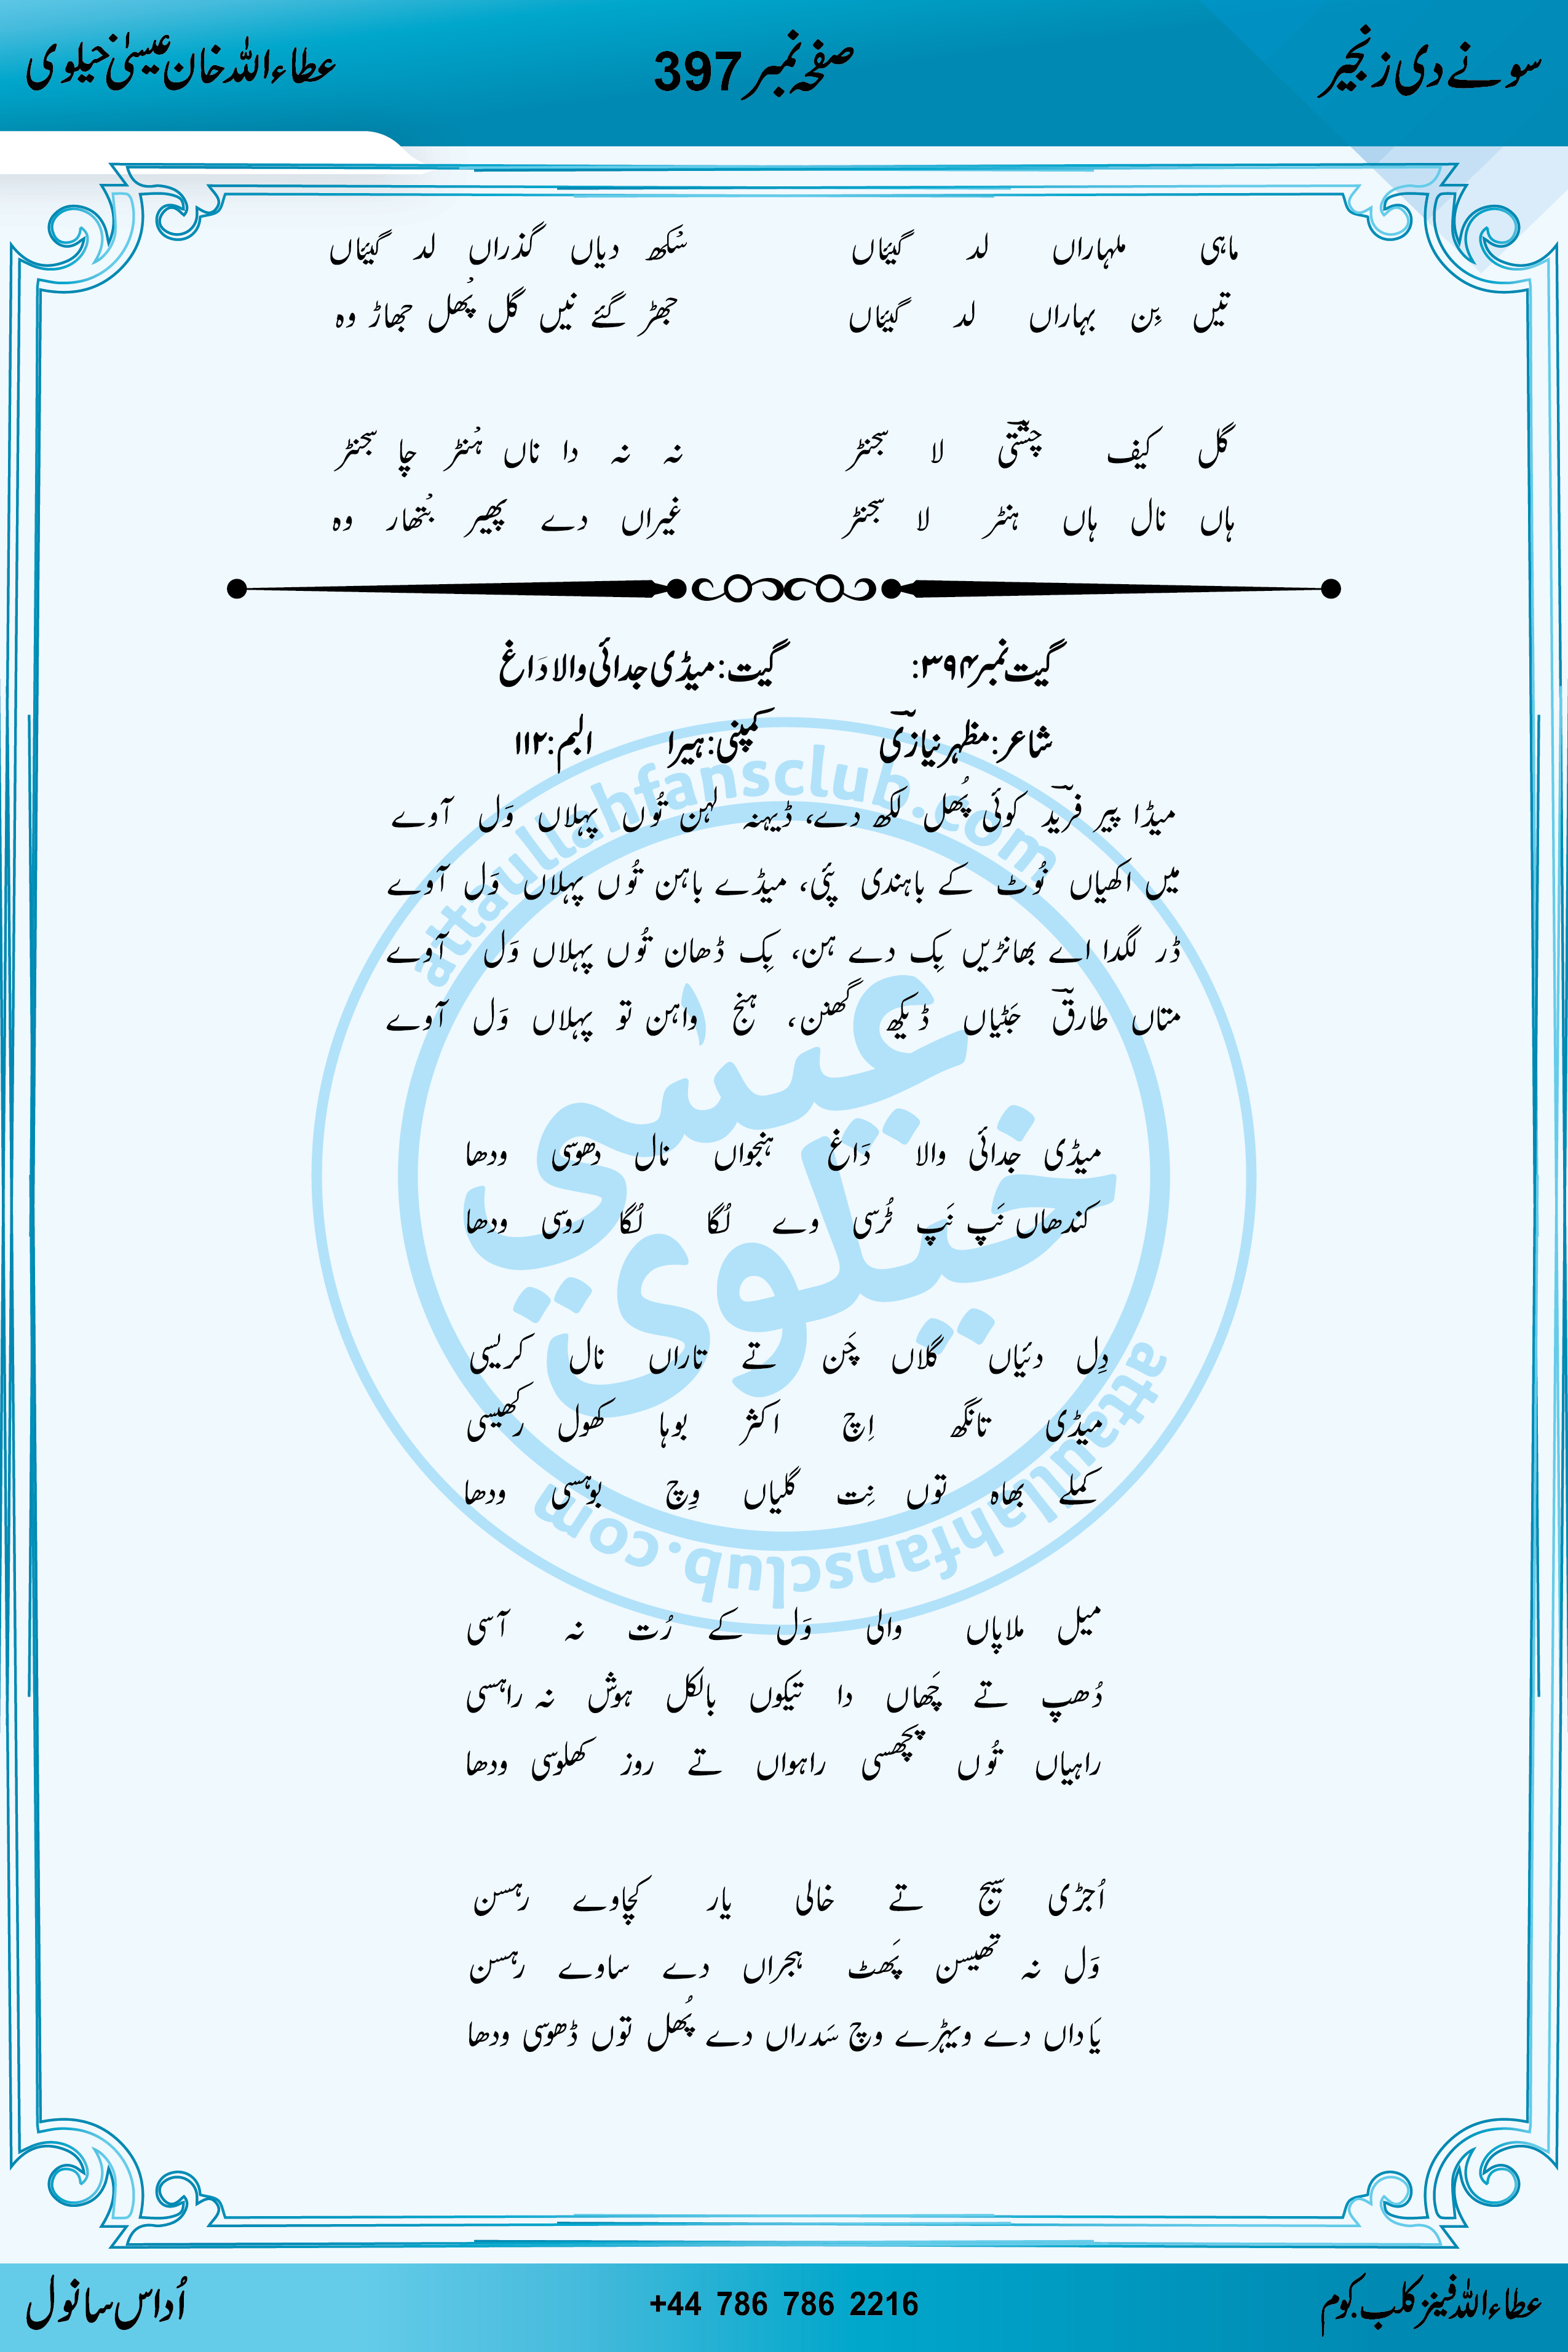 سونے دی زنجیر صفحہ نمبر 397 عطاءاللہ خان عیسیٰ خیلوی
ماہی ملہاراں لد گیئاں سُکھ دیاں گذراں لد گیئاں
تیں بِن بہاراں لد گیئاں جھڑ گئے نیں گل پُھل جھاڑ وہ
گل کیف چشتیؔ لا سجنڑ نہ نہ دا ناں ہُنڑ چا سجنڑ
ہاں نال ہاں ہنٹر لا سجنڑ غیراں دے پھیر بُتھار وہ
گیت نمبر ۳۹۴: گیت: میڈی جدائی والا دَاغ
شاعر: مظہر نیازیؔ کمپنی: ہیرا البم: ۱۱۲
میڈا پیر فریدؔ کوئی پُھل لکھ دے، ڈیہنہ لہن تُوں پہلاں وَل آوے
میں اکھیاں نُوٹ کے باہندی پئی، میڈے باہن تُوں پہلاں وَل آوے
ڈر لگدا اے بھانڑیں بِک دے ہن، بِک ڈھان تُوں پہلاں وَل آوے
متاں طارقؔ جَٹیاں ڈیکھ گھنن، ہنج واہن تو پہلاں وَل آوے
میڈی جدائی والا دَاغ ہنجواں نال دھوسی ودھا
کندھاں نَپ نَپ ٹُرسی وے لُگا لُگا روسی ودھا
دِل دیئاں گلاں چَن تے تاراں نال کریسی
میڈی تانگھ اِچ اکثر بوہا کھول رکھیسی
کملے بھاہ توں نِت گلیاں وِچ بوہسی ودھا
میل ملاپاں والی وَل کے رُت نہ آسی
دُھپ تے چَھاں دا تیکوں بالکل ہوش نہ راہسی
راہیاں تُوں پچھسی راہواں تے روز کھلوسی ودھا
اُجڑی سیج تے خالی یار کچاوے رہسن
وَل نہ تھیسن پَھٹ ہجراں دے ساوے رہسن
یَاداں دے ویہڑے وچ سَدراں دے پُھل توں ڈھوسی ودھا
attaullahfansclub.com
عیسٰی
خیلوی
attaullahfansclub.com
عطاءاللہ فینز کلب.کوم +44 786 786 2216 اُداس سانول